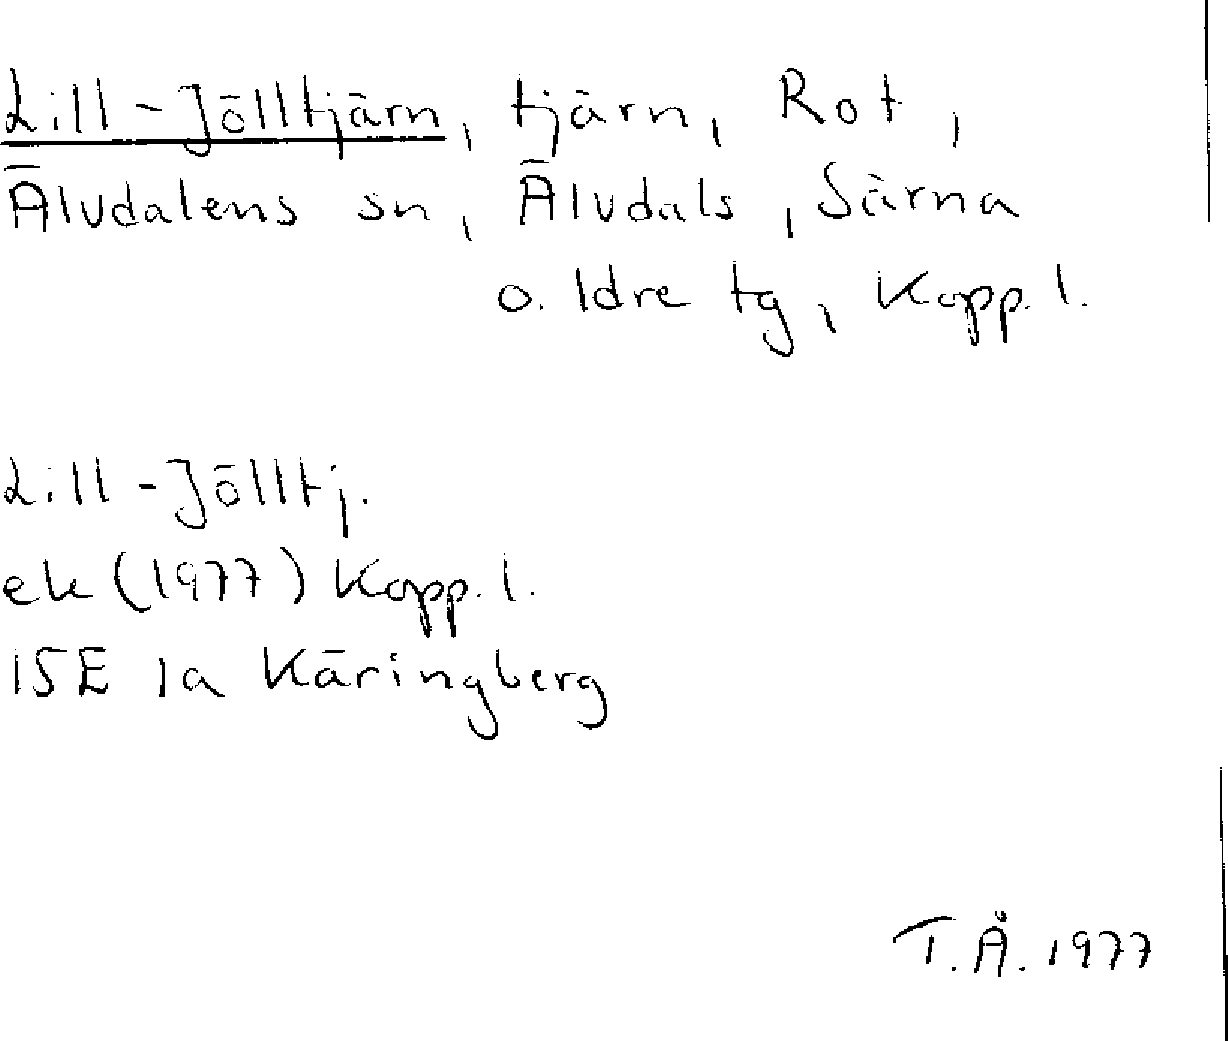 Lill-Jölltjärn, tjärn, Rot,
Älvdalens sn, Älvdals, Särna
o. Idre tg, Kopp. l.
Lill-Jölltj.
ek (1977) Kopp. l.
15E 1a Käringberg
T.Å. 1977